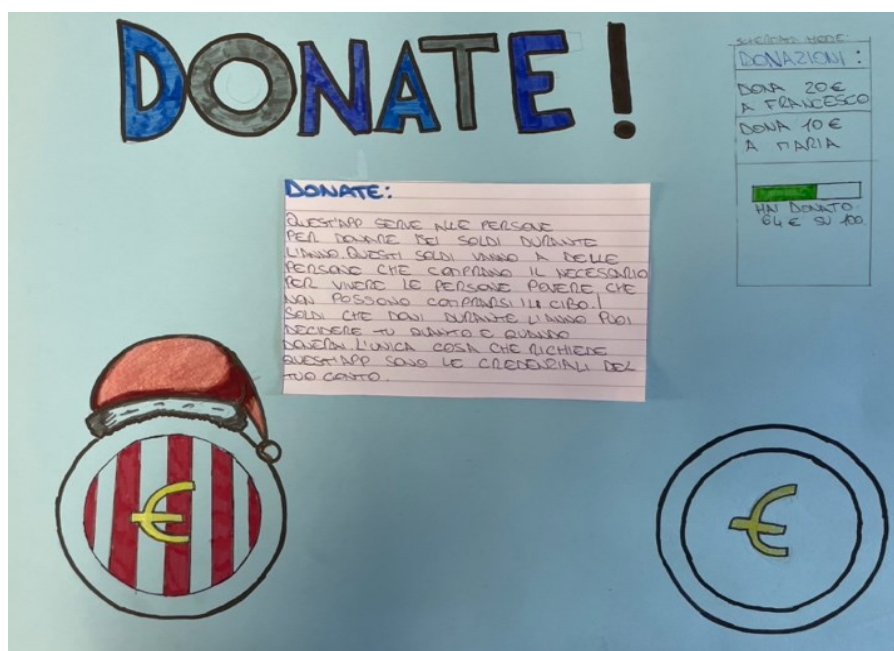 DONATE!
SCHERMATA HOME:
DONAZIONI:
DONA 20€
A FRANCESCO
DONA 10€
A MARIA
HAI DONATO
64€ SU 100.
DONATE:
QUEST'APP SERVE ALLE PERSONE
PER DONARE DEI SOLDI DURANTE
L'ANNO. QUESTI SOLDI VANNO A DELLE
PERSONE CHE COMPRANO IL NECESSARIO
PER VIVERE LE PERSONE POVERE CHE
NON POSSONO COMPRARSI IL CIBO. I
SOLDI CHE DONI DURANTE L'ANNO PUOI
DECIDERE TU QUANTO E QUANDO
DONERAI. L'UNICA COSA CHE RICHIEDE
QUEST'APP SONO LE CREDENZIALI DEL
TUO CONTO.
€
€